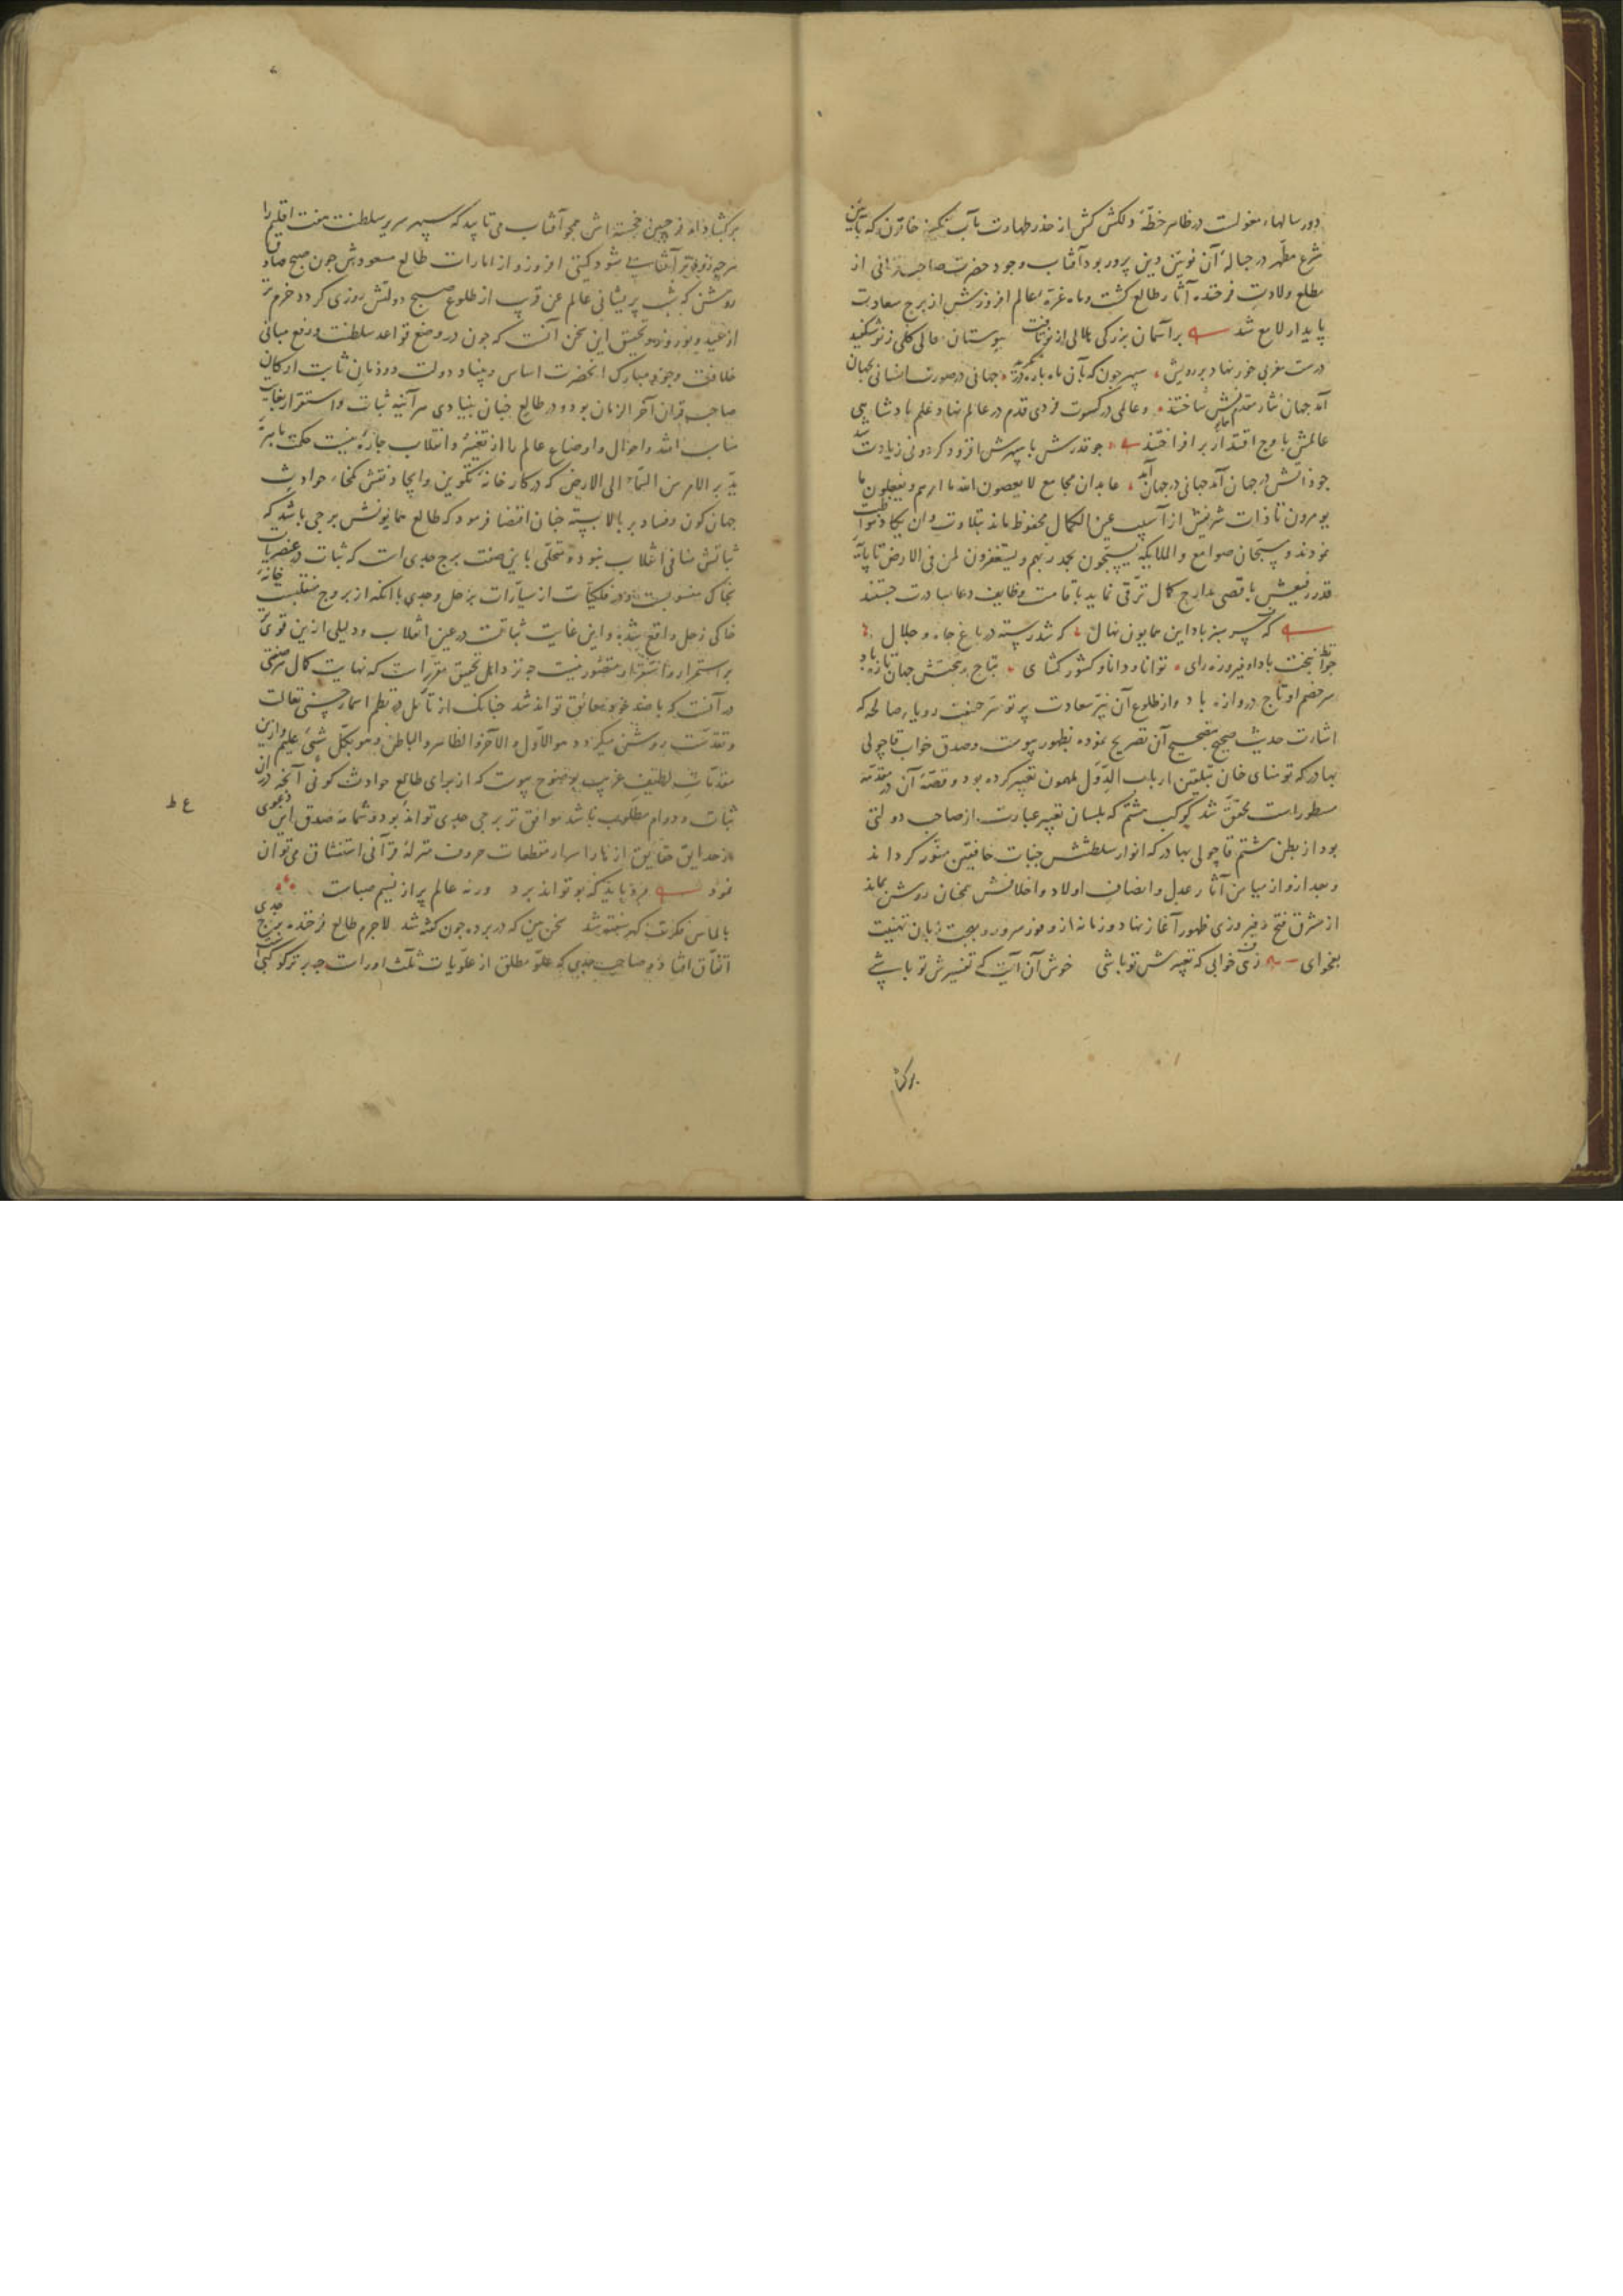 دور سالهاء مغولست در ظاهر خطّهٔ دلکش کش از حذر طهارت مآب تکینه خاتون که بآیین
شرع مطهّر در حبالهٔ آن نویین دین پرور بود آفتاب وجود حضرت صاحبقرانی از
مطلع ولادت فرخنده آثار طالع کشت و ماه غرّه عالم افروزش از برج سعادت
پایدار لامع شد بر آسمان بزرکی هلالی از نو تافت ببوستان معالی کلی ز نو شکفید
درست مغربی خور نهاد بر رویش سپهر چون که بآن ماه پاره در نکرید جهانی در صورت انسانی بجهان
آمد جهان نثار مقدمش ساختند و عالمی در کسوت فردی قدم در عالم نهاد علم پادشاهی
عالمش باوج اقتدار بر افراختند چو قدرش با سپهرش افزود کردونی زیادت شد
چو ذاتش در جهان آمد جهانی در جهان آمد عابدان مجامع لا یعصون الله ما امرهم و یفعلون ما
یومرون تا ذات شریفش از آسیب عین الکمال محفوظ ماند بتلاوت وان یکاد مواظبت
نمودند و سبّحان صوامع و الملایکه یسبّحون بحمد ربهم و یستغفرون لمن فی الارض تا پایهٔ
قدر رفیعش باقصی مدارج کمال ترقی نماید باقامت وظایف دعا مبادرت جستند
که سرسبز باد این همایون نهال که شد رسته در باغ جاه و جلال
جوانبخت باد او فیروزه رای توانا و دانا و کشور کشای بتاج و تختش جهان تازه باد
سر خصم او تاج دروازه باد و از طلوع آن نیّر سعادت پرتو سرّ حقیقت رویاء صالحه که
اشارت حدیث صحیح بتصحیح آن تصریح نموده بظهور پیوست و صدق خواب قاچولی
بهادر که تومنای خان بتلقین ارباب الدّول ملهمون تعبیر کرده بود و قصّهٔ آن در مقدّمه
مسطورست محقّق شد کوکب هشتم که بلسان تعبیر عبارت از صاحب دولتی
بود از بطن هشتم قاچولی بهادر که انوار سلطنتش جنبات خافقین منوّر کرداند
و بعد ازو از میامن آثار عدل و انصاف اولاد و اخلافش همچنان روشن بماند
از مشرق فتح و فیروزی ظهور آغاز نهاد و زمانه از وفور سرور و بهجت زبان تهنیت
بفحوای زهی خوابی که تعبیرش تو باشی خوش آن آیت که تفسیرش تو باشی
برکشاد
برکشاد از جبین خجسته‌اش همچو آفتاب می‌تابید که سپهر سریر سلطنت هفت اقلیم را
هرچه زودتر آفتابی شود کیتی افروز و از امارات طالع مسعودش چون صبح صادق
روشن که شب پریشانی عالم عن قریب از طلوع صبح دولتش روزی کردد خرم تر
از عید و نوروز و تحقیق این سخن آنست که چون در وضع قواعد سلطنت و رفع مبانی
خلافت وجود مبارک آنحضرت اساس و بنیاد دولت دودمان ثابت ارکان
صاحب قران آخر الزمان بود و در طالع چنان بنیادی هر آینه ثبات و استقرار بغایت
مناسب افتد و احوال و اوضاع عالم را از تغییر و انقلاب چاره نیست حکمت باهرهٔ
یدبر الامر من السّماء الی الارض که در کارخانهٔ تکوین و ایجاد نقش کمخاء حوادث
جهان کون و فساد بر بالا بسته چنان اقتضا فرمود که طالع همایونش برجی باشد که
ثباتش منافی انقلاب نبود و متحلّی باین صفت برج جدی است که ثبات در عنصریات
بخاک منسوبست و در فلکیّات از سیّارات بزحل و جدی با آنکه از بروج منقلبست خانهٔ
خاکی زحل واقع شده و این غایت ثباتست در عین انقلاب و دلیلی ازین قوی تر
بر استمرار و استقرار متصوّر نیست چه نزد اهل تحقیق مقرّرست که نهایت کمال هر صفتی
در آنست که با ضد خود معانق تواند شد چنانک از تأمّل در نظم اسماء حسنی تعالت
و تقدّست روشن میکردد هو الاوّل و الآخر و الظاهر و الباطن و هو بکلّ شیء علیم و ازین
مقدّمات لطیف غریب بوضوح پیوست که از برای طالع حوادث کونی آنچه در آن
ثبات و دوام مطلوب باشد موافق تر برجی جدی تواند بود و شمامهٔ صدق این دعوی
از حدایق حقایق ازهار اسرار مقطعات حروف منزلهٔ قرآنی استنشاق می‌توان
نمود مرد باید که بو تواند برد ورنه عالم پر از نسیم صباست
بالماس فکرت کهر سفته شد سخن بین که در پرده چون کفته شد لاجرم طالع فرخنده برج جدی
اتفاق افتاد و صاحب جدی که علوّ مطلق از علویات ثلث اوراست چه برتر کوکبی